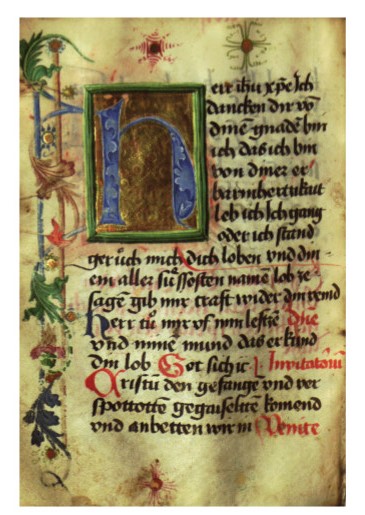 herr ihu xpe Ich
dancken dir vō
dinē gnadē bin
ich das ich bin
von diner er
barmhertzikait
leb ich Ich gang
oder ich stand
gerůch mich Dich loben vnd din
em aller sůssosten namē lob ze
sagē gib mir craft wider din veind
herr tů mir vf min lefftzē Die
vnd minē mund das er kūnd
din lob Got sich ic Inuitatoriū
Cristū den gefange vnd ver
spottottē gegaiseltē komend
vnd anbetten wir in Venite